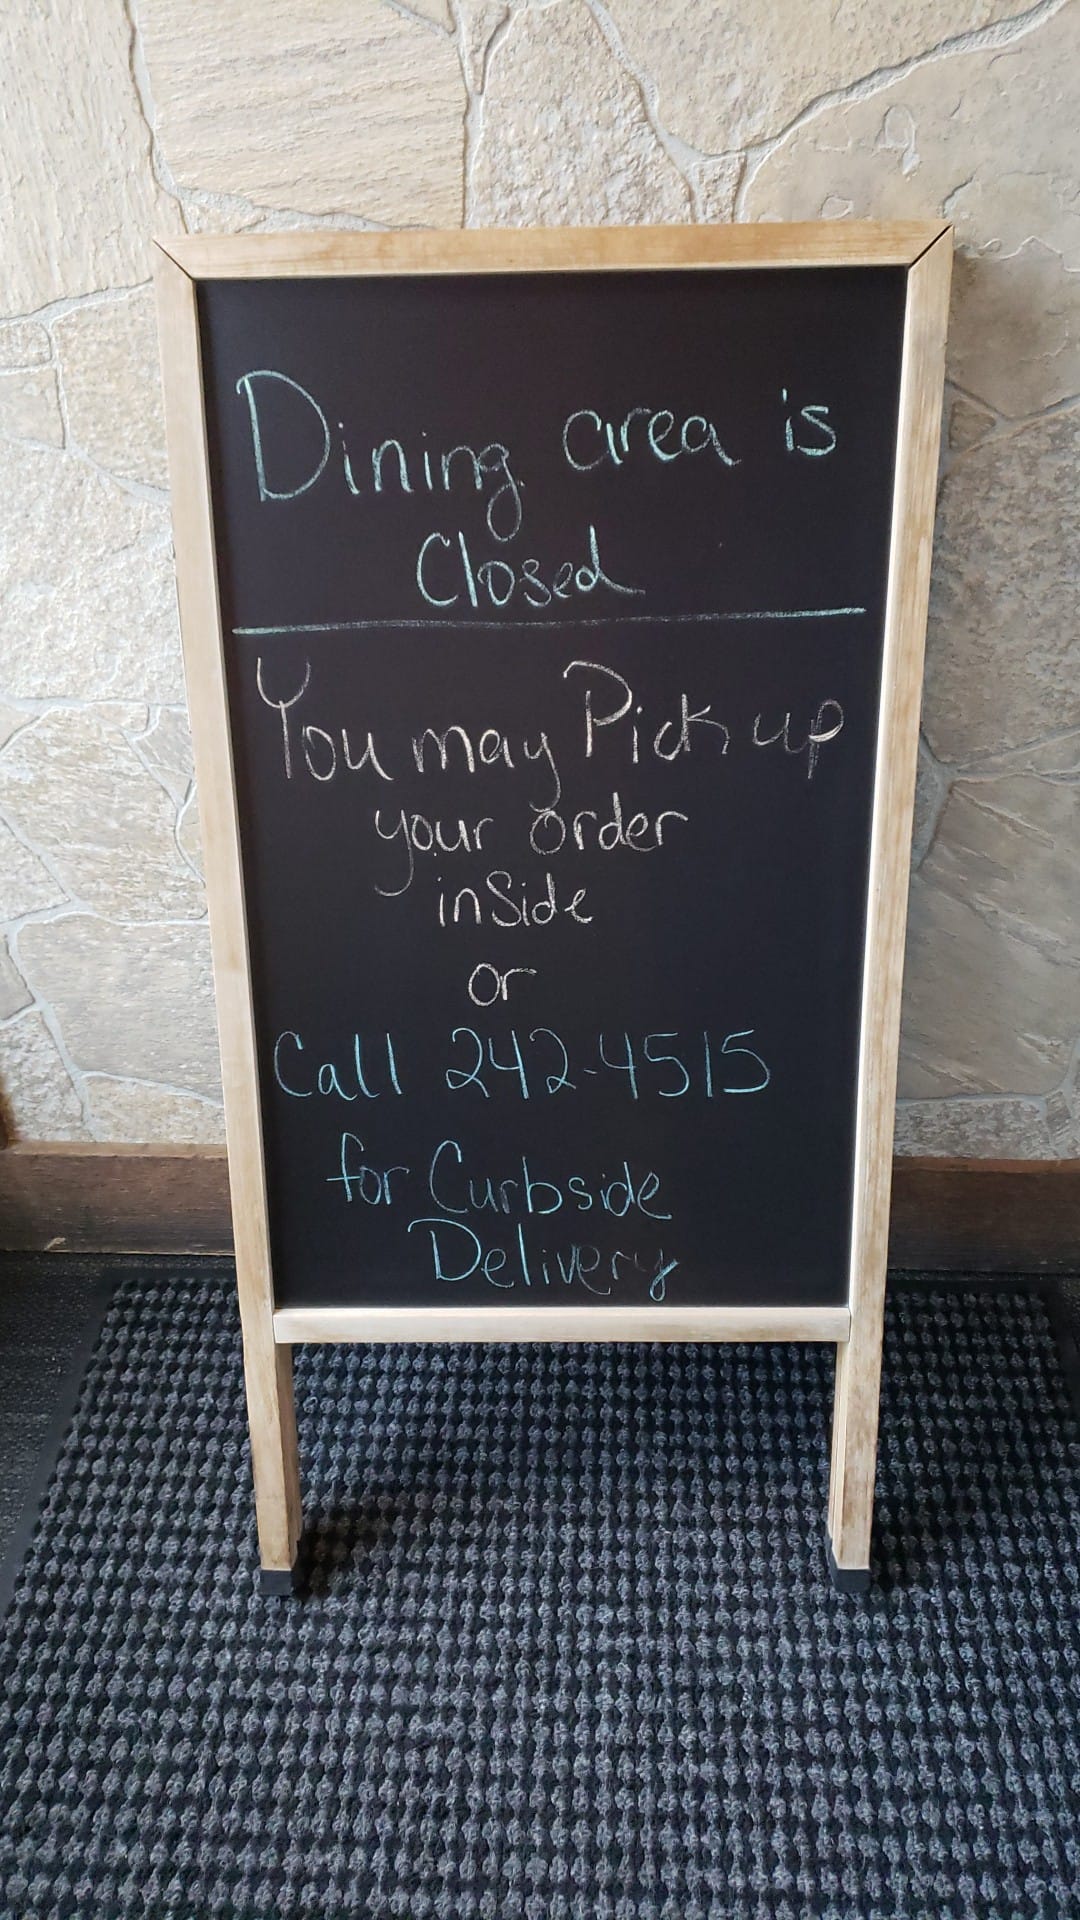 Dining area is
Closed
You may Pick up
your order
inside
or
Call 242-4515
for Curbside
Delivery